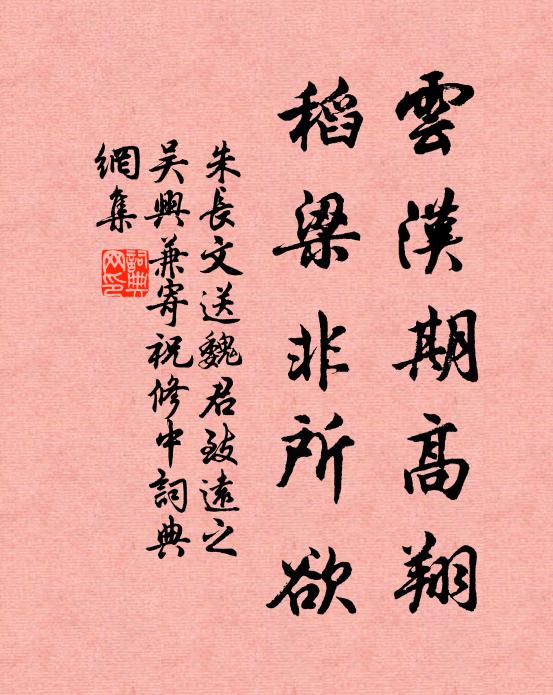 雲漢期高翔
稻粱非所欲
朱長文送魏君致遠之
吴興兼寄祝修中詞典
網集
詞典网印